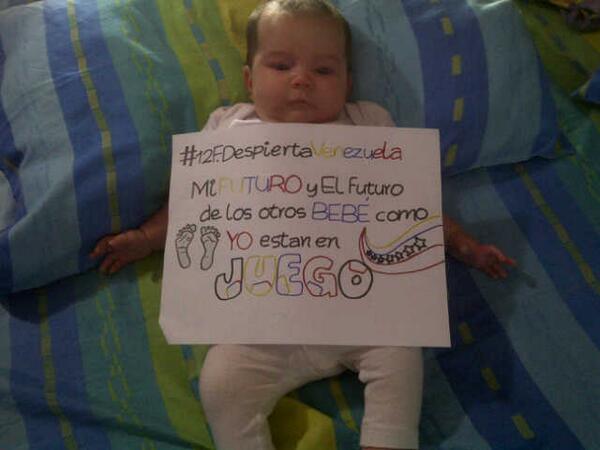 #12F.DespiertaVenezuela
Mi FUTURO y El Futuro
de los otros BEBÉ como
YO estan en
JUEGO